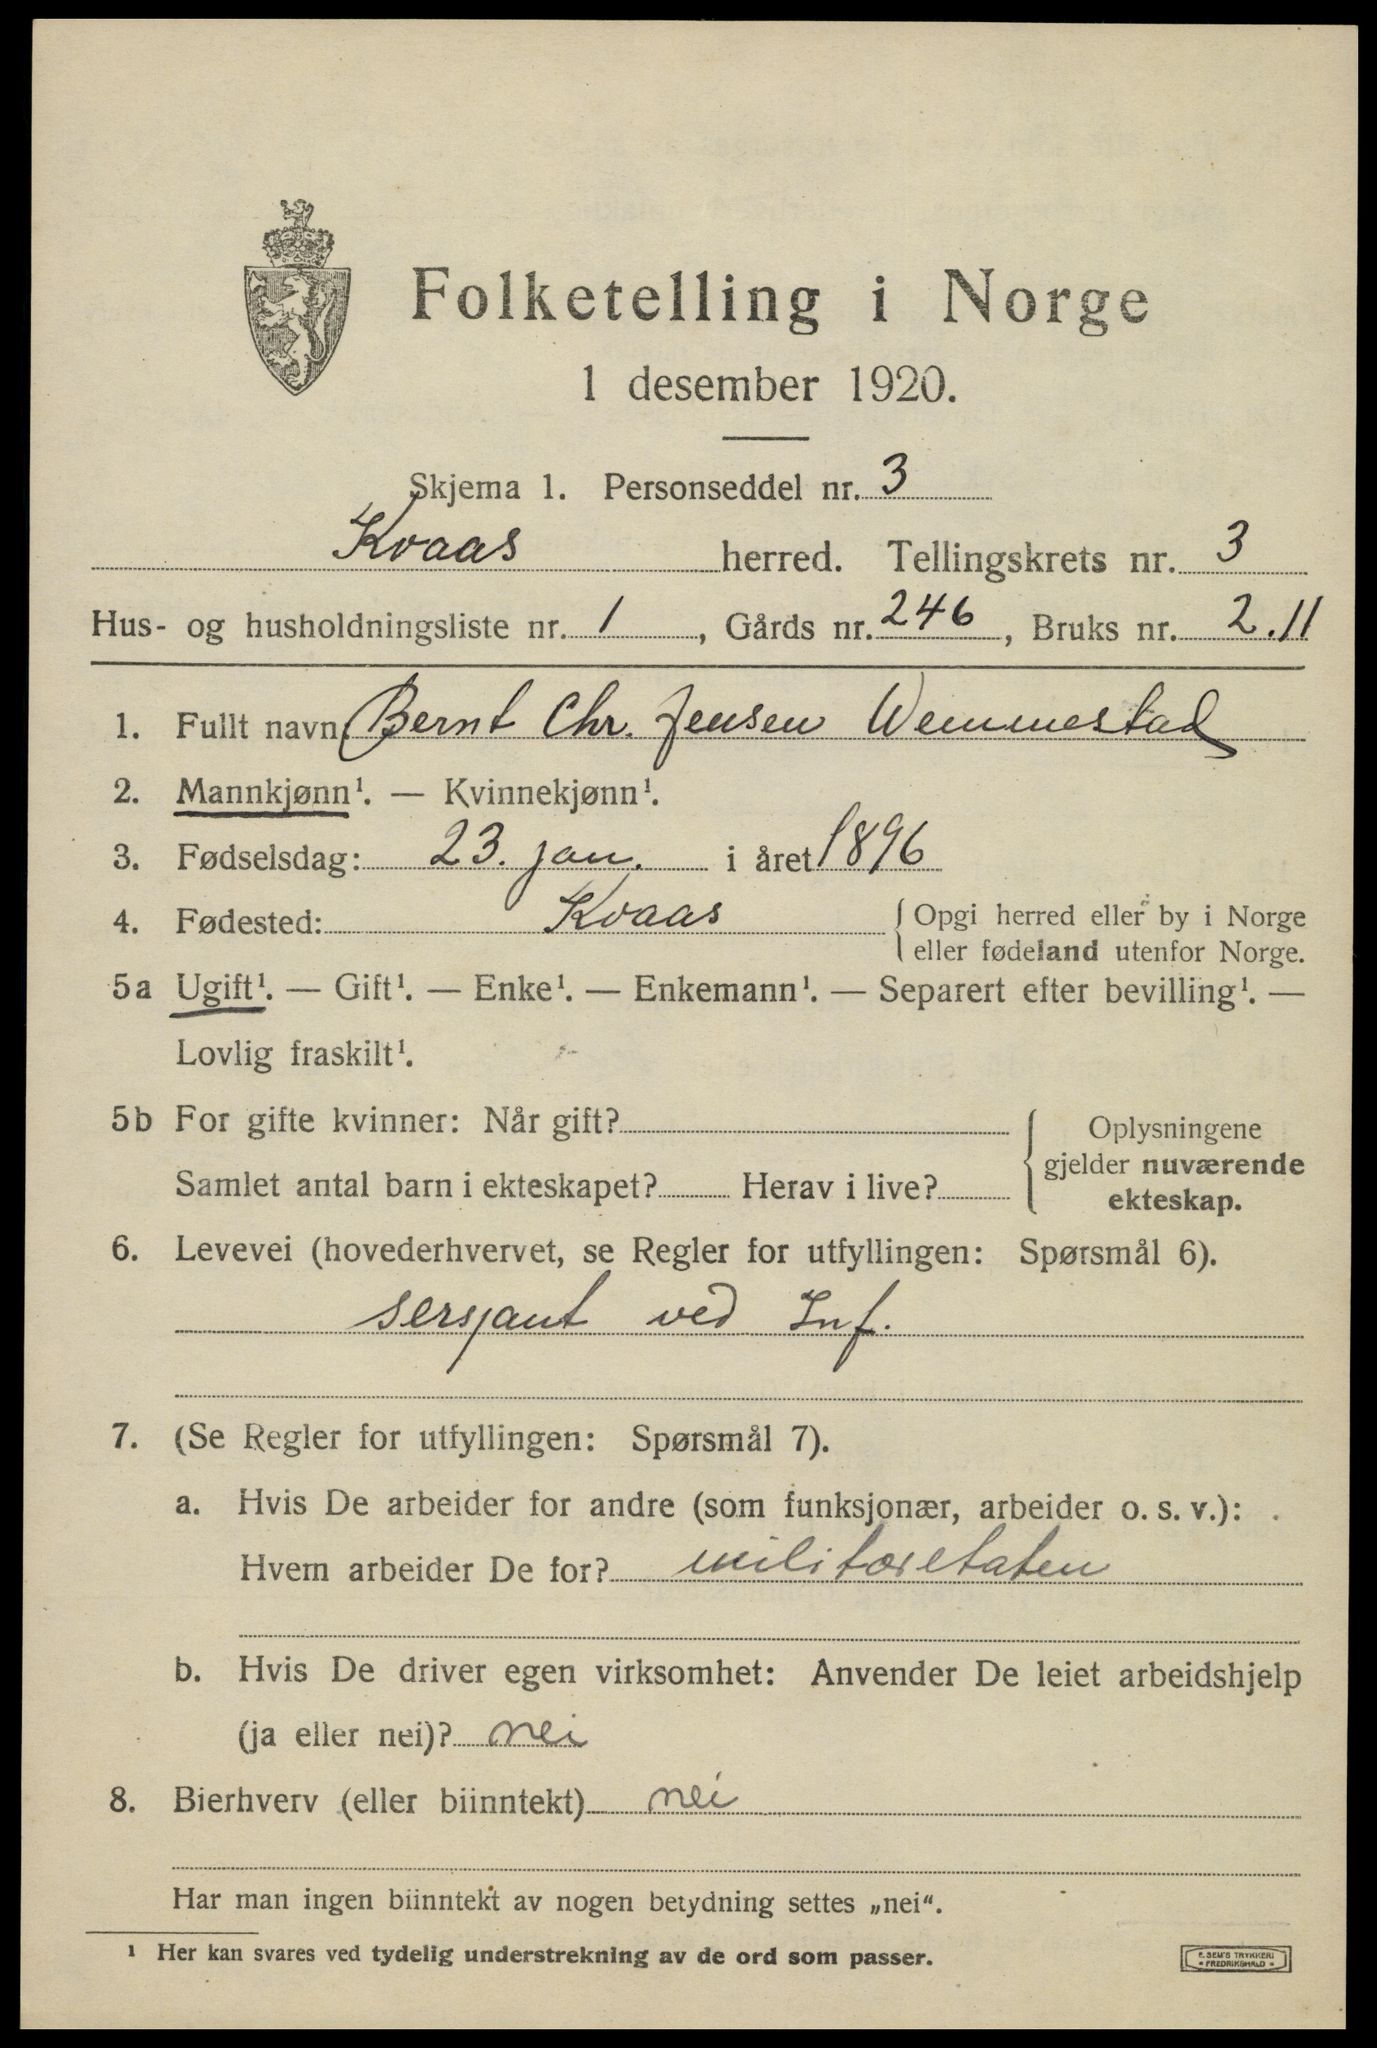 Folketelling i Norge
1 desember 1920.
Skjema 1. Personseddel nr. 3
Kvaas herred. Tellingskrets nr. 3
Hus- og husholdningsliste nr. 1, Gårds nr. 246, Bruks nr. 2.11
1. Fullt navn Bernt Chr. Jensen Wemmestad
2. Mannkjønn¹. — Kvinnekjønn¹.
3. Fødselsdag: 23. jan. i året 1896
4. Fødested: Kvaas { Opgi herred eller by i Norge
eller fødeland utenfor Norge.
5a Ugift¹. — Gift¹. — Enke¹. — Enkemann¹. — Separert efter bevilling¹. —
Lovlig fraskilt¹.
5b For gifte kvinner: Når gift? { Oplysningene
gjelder nuværende
Samlet antal barn i ekteskapet? Herav i live? ekteskap.
6. Levevei (hovederhvervet, se Regler for utfyllingen: Spørsmål 6).
sersjant ved Inf.
7. (Se Regler for utfyllingen: Spørsmål 7).
a. Hvis De arbeider for andre (som funksjonær, arbeider o. s. v.):
Hvem arbeider De for? militæretaten
b. Hvis De driver egen virksomhet: Anvender De leiet arbeidshjelp
(ja eller nei)? nei
8. Bierhverv (eller biinntekt) nei
Har man ingen biinntekt av nogen betydning settes „nei“.
¹ Her kan svares ved tydelig understrekning av de ord som passer.
E. SEM'S TRYKKERI
* FREDRIKSHALD *